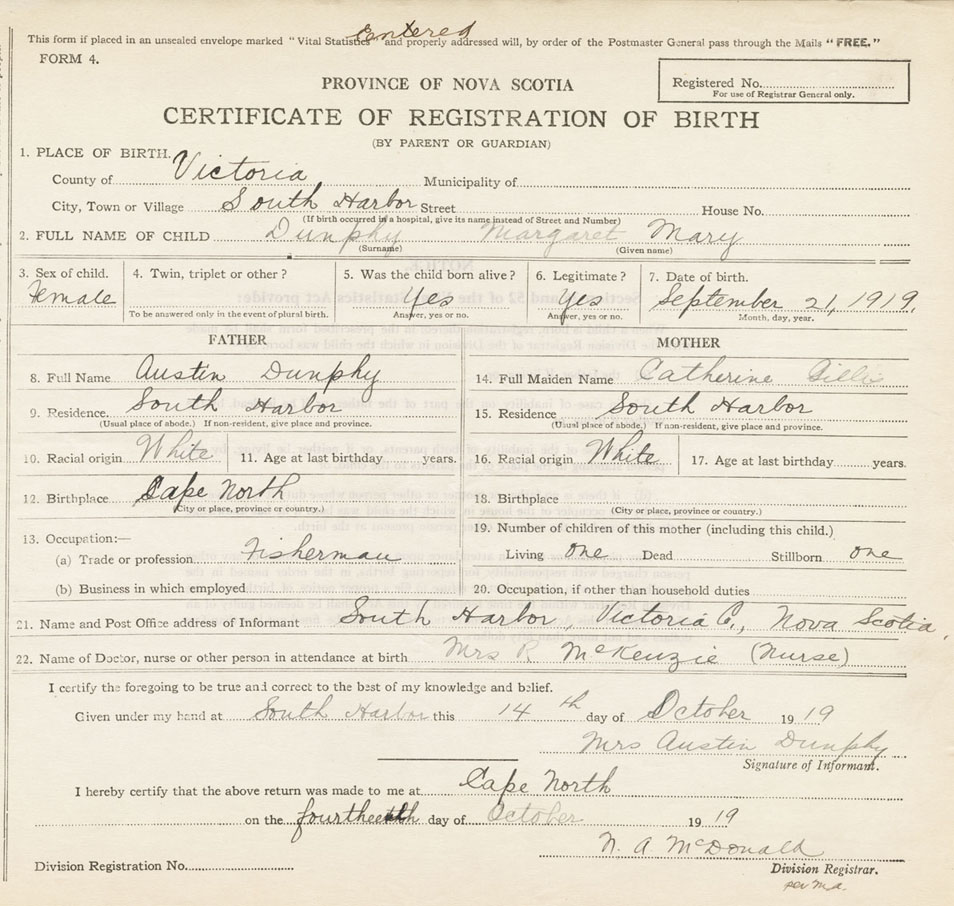 Entered
This form if placed in an unsealed envelope marked "Vital Statistics" and properly addressed will, by order of the Postmaster General pass through the Mails "FREE."
FORM 4.
Registered No.
For use of Registrar General only.
PROVINCE OF NOVA SCOTIA
CERTIFICATE OF REGISTRATION OF BIRTH
(BY PARENT OR GUARDIAN)
1. PLACE OF BIRTH.
County of Victoria Municipality of
City, Town or Village South Harbor Street House No.
(If birth occurred in a hospital, give its name instead of Street and Number)
2. FULL NAME OF CHILD Dunphy Margaret Mary
(Surname) (Given name)
3. Sex of child. 4. Twin, triplet or other? 5. Was the child born alive? 6. Legitimate? 7. Date of birth.
Female Yes Yes September 21, 1919.
To be answered only in the event of plural birth. Answer, yes or no. Answer, yes or no. Month, day, year.
FATHER MOTHER
8. Full Name Austin Dunphy 14. Full Maiden Name Catherine Gillis
9. Residence. South Harbor 15. Residence South Harbor
(Usual place of abode.) If non-resident, give place and province. (Usual place of abode.) If non-resident, give place and province.
10. Racial origin White 11. Age at last birthday years. 16. Racial origin White 17. Age at last birthday years.
12. Birthplace Cape North 18. Birthplace
(City or place, province or country.) (City or place, province or country.)
13. Occupation:— 19. Number of children of this mother (including this child.)
(a) Trade or profession Fisherman Living one Dead Stillborn one
(b) Business in which employed 20. Occupation, if other than household duties
21. Name and Post Office address of Informant South Harbor, Victoria C., Nova Scotia,
22. Name of Doctor, nurse or other person in attendance at birth Mrs R McKenzie (Nurse)
I certify the foregoing to be true and correct to the best of my knowledge and belief.
Given under my hand at South Harbor this 14th day of October 1919
Mrs Austin Dunphy
Signature of Informant.
I hereby certify that the above return was made to me at Cape North
on the fourtheenth day of October 1919
N. A McDonald
Division Registration No. Division Registrar.
per m.a.